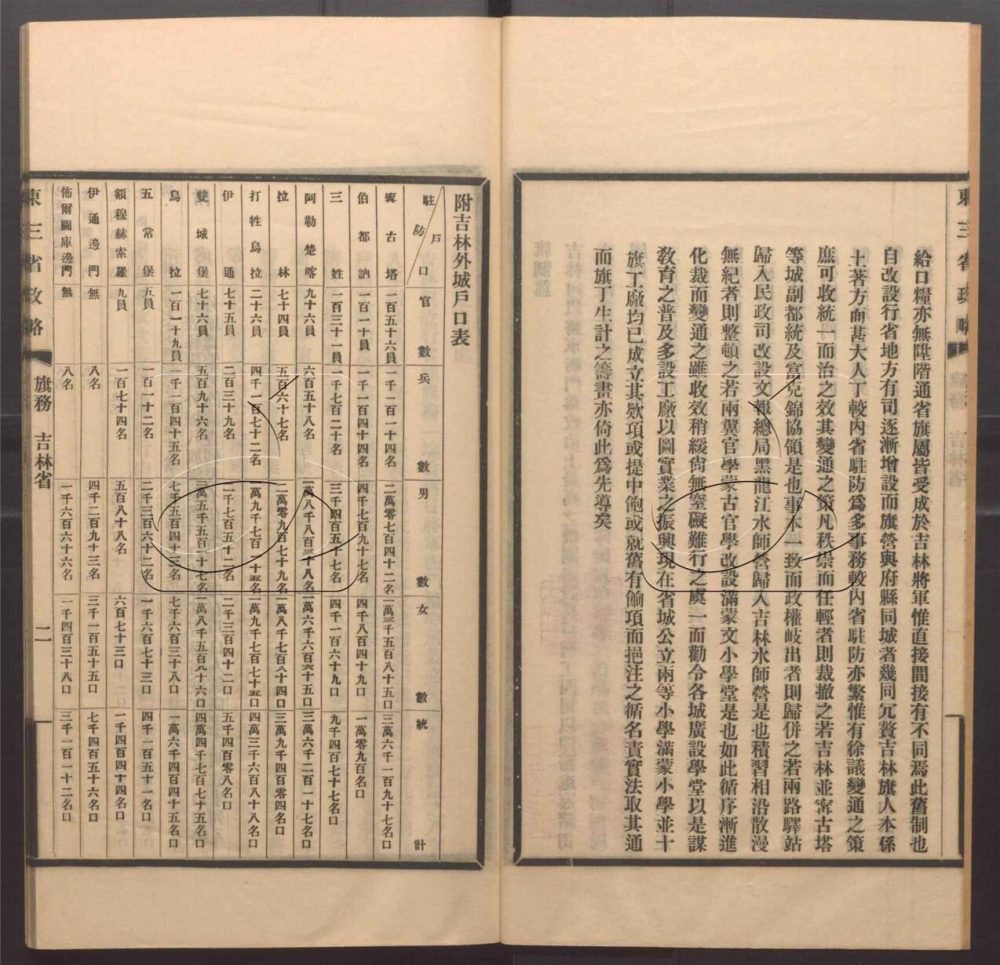 給口糧亦無陞階通省旗屬皆受成於吉林將軍惟直接間接有不同焉此舊制也
自改設行省地方有司逐漸增設而旗營與府縣同城者幾同冗贅吉林旗人本係
土著方面甚大人丁較內省駐防為多事務較內省駐防亦繁惟有徐議變通之策
庶可收統一而治之效其變通之策凡秩崇而任輕者則裁撤之若吉林並甯古塔
等城副都統及富克錦協領是也事本一致而政權岐出者則歸併之若兩路驛站
歸入民政司改設文報總局黑龍江水師營歸入吉林水師營是也積習相沿散漫
無紀者則整頓之若兩翼官學蒙古官學改設滿蒙文小學堂是也如此循序漸進
化裁而變通之雖收效稍緩尙無窒礙難行之處一面勸令各城廣設學堂以是謀
敎育之普及多設工廠以圖實業之振興現在省城公立兩等小學滿蒙小學並十
旗工廠均已成立其欵項或提中飽或就舊有餉項而挹注之循名責實法取其通
而旗丁生計之籌畫亦倚此為先導矣
附吉林外城戶口表
駐防 戶口 官數 兵數 男數 女數 統計
甯古塔 一百五十六員 一千一百一十四名 二萬零七百四十二名 口 三萬六千一百九十七名口
伯都訥 一百一十員 一千一百四十四名 四千七百九十七名 四千八百九十五口 一萬零九百名口
三姓 一百三十一員 一千七百二十名 三千四百五十七名 四千一百六十九口 九千四百七十七名口
阿勒楚喀 九十六員 六百五十八名 一萬八千八百三十八名 一萬六千六百六十五口 三萬六千二百一十七名口
拉林 七十四員 五百六十七名 二萬零九百七十九名 一萬八千七百八十四口 三萬九千四百零四名口
打牲烏拉 二十六員 四千一百七十二名 一萬九千七百 十 名 一萬九千七百七十 口 四萬三千六百八十八名口
伊通 七十五員 二百三十九名 二千七百五十二名 二千三百四十二口 五千四百零八名口
雙城堡 七十六員 五百九十六名 二萬五千五百一十七名 一萬八千五百八十六口 四萬四千七百七十五名口
烏拉 一百一十九員 一千一百四十五名 七千五百四十三名 七千六百三十八口 一萬六千四百四十五名口
五常堡 五員 一百一十二名 二千三百六十二名 一千六百七十三口 四千一百五十一名口
額穆赫索羅 九員 一百七十四名 五百八十八名 六百七十三口 一千四百四十四名口
伊通邊門 無 八名 四千二百九十三名 三千一百五十五口 七千四百五十六名口
佈爾圖庫邊門 無 八名 一千六百六十六名 一千四百三十八口 三千一百一十二名口
東三省政略 旗務 吉林省 二